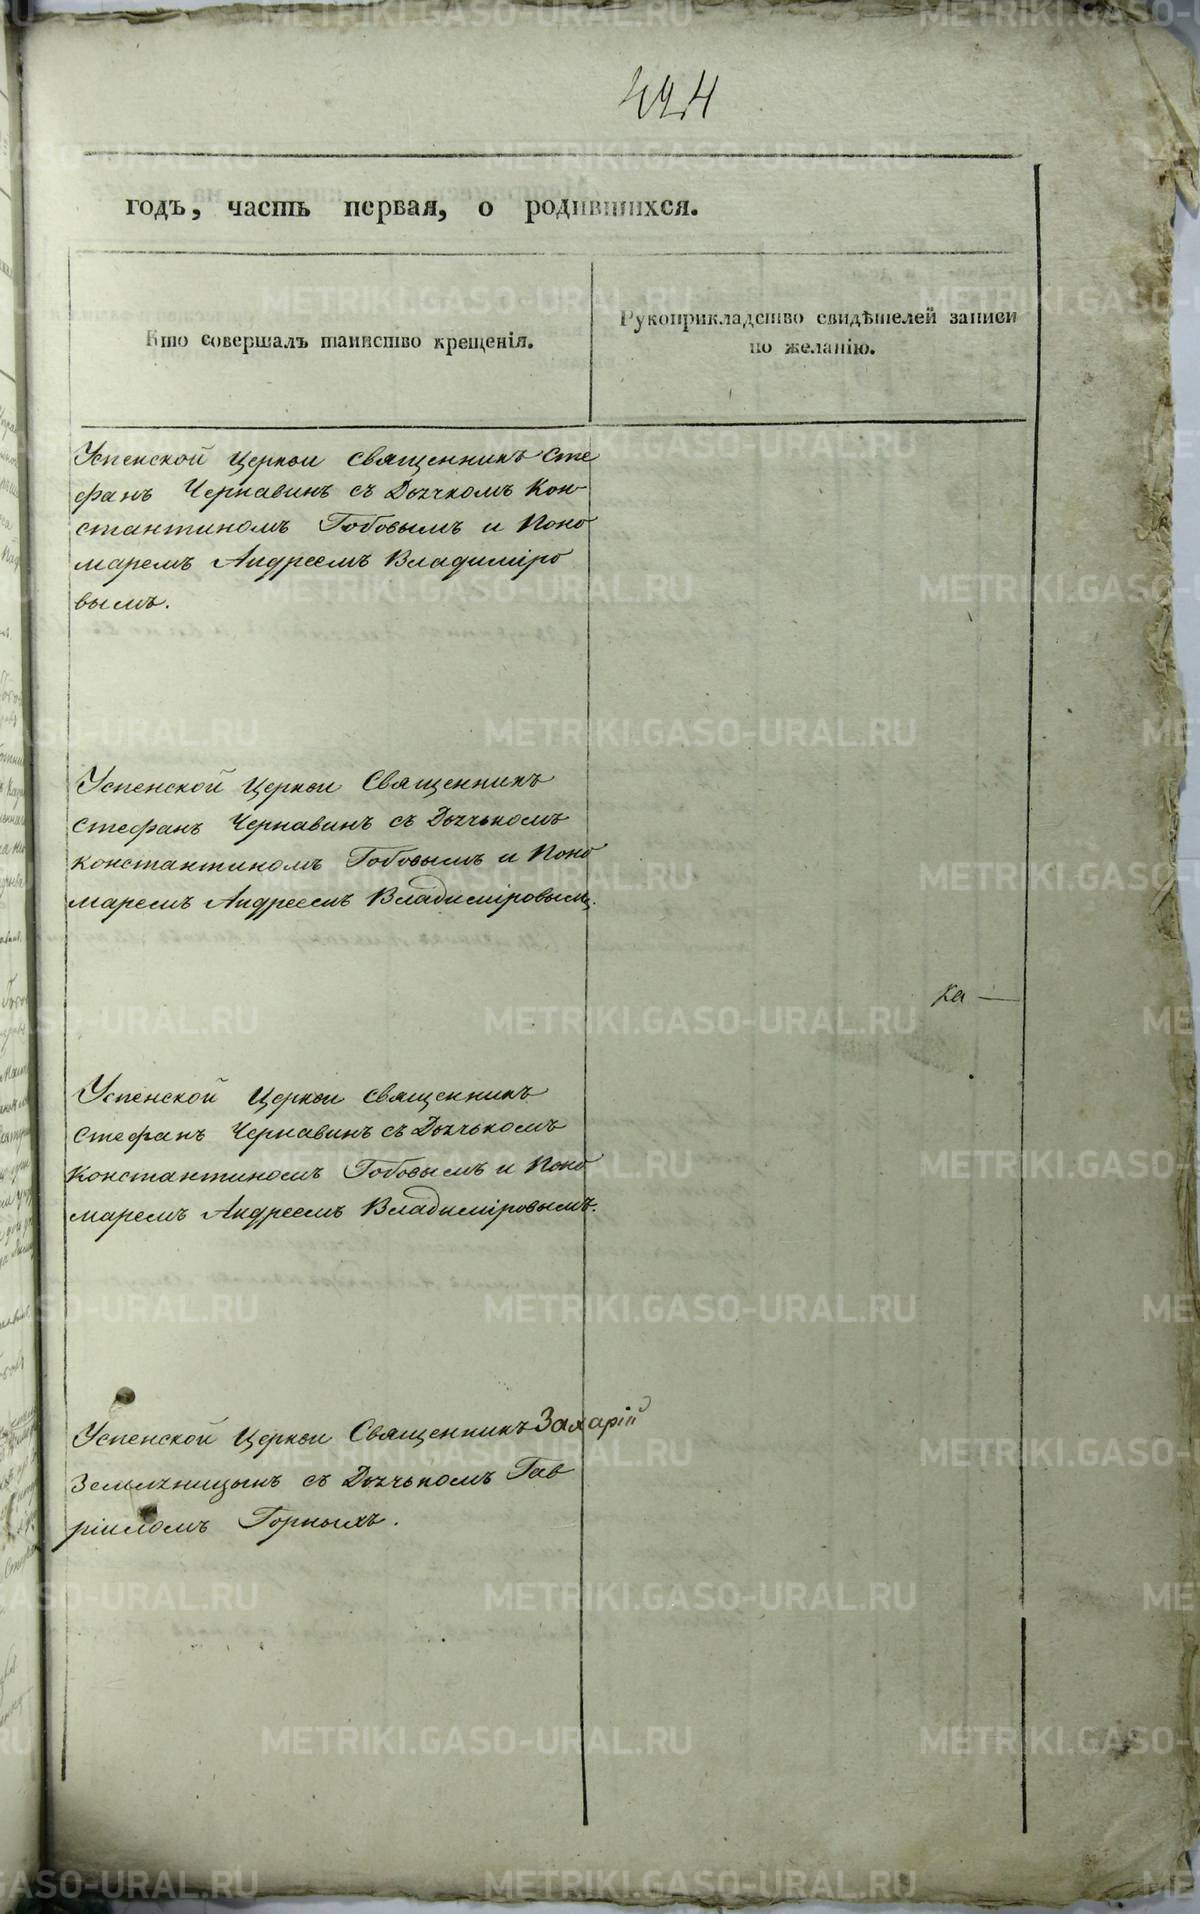 424
годъ, часть первая, о родившихся.
Кто совершалъ таинство крещенія.
Рукоприкладство свидѣтелей записи
по желанію.
Успенской Церкви священникъ Сте
фанъ Чернавинъ съ Дьячкомъ Кон-
стантиномъ Гобовымъ и Поно
маремъ Андреемъ Владиміро
вымъ.
Успенской Церкви Священникъ
Стефанъ Чернавинъ съ Дьячькомъ
Константиномъ Гобовымъ и Поно
маремъ Андреемъ Владиміровымъ.
Ка —
Успенской Церкви священникъ
Стефанъ Чернавинъ съ Дьячькомъ
Константиномъ Гобовымъ и Поно
маремъ Андреемъ Владиміровымъ.
Успенской Церкви Священникъ Захарій
Земляницынъ съ Дьячькомъ Гав
ріиломъ Горныхъ.
METRIKI.GASO-URAL.RU